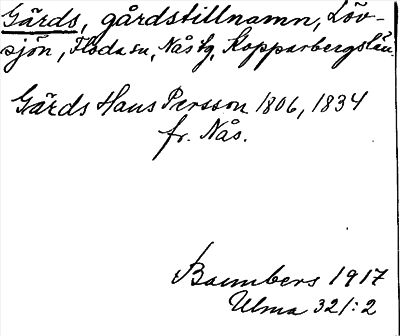 Gärds, gårdstillnamn, Löv-
sjön, Floda sn, Nås tg, Kopparbergs län.
Gärds Hans Persson 1806, 1834
fr. Nås.
1917
Ulma 321:2